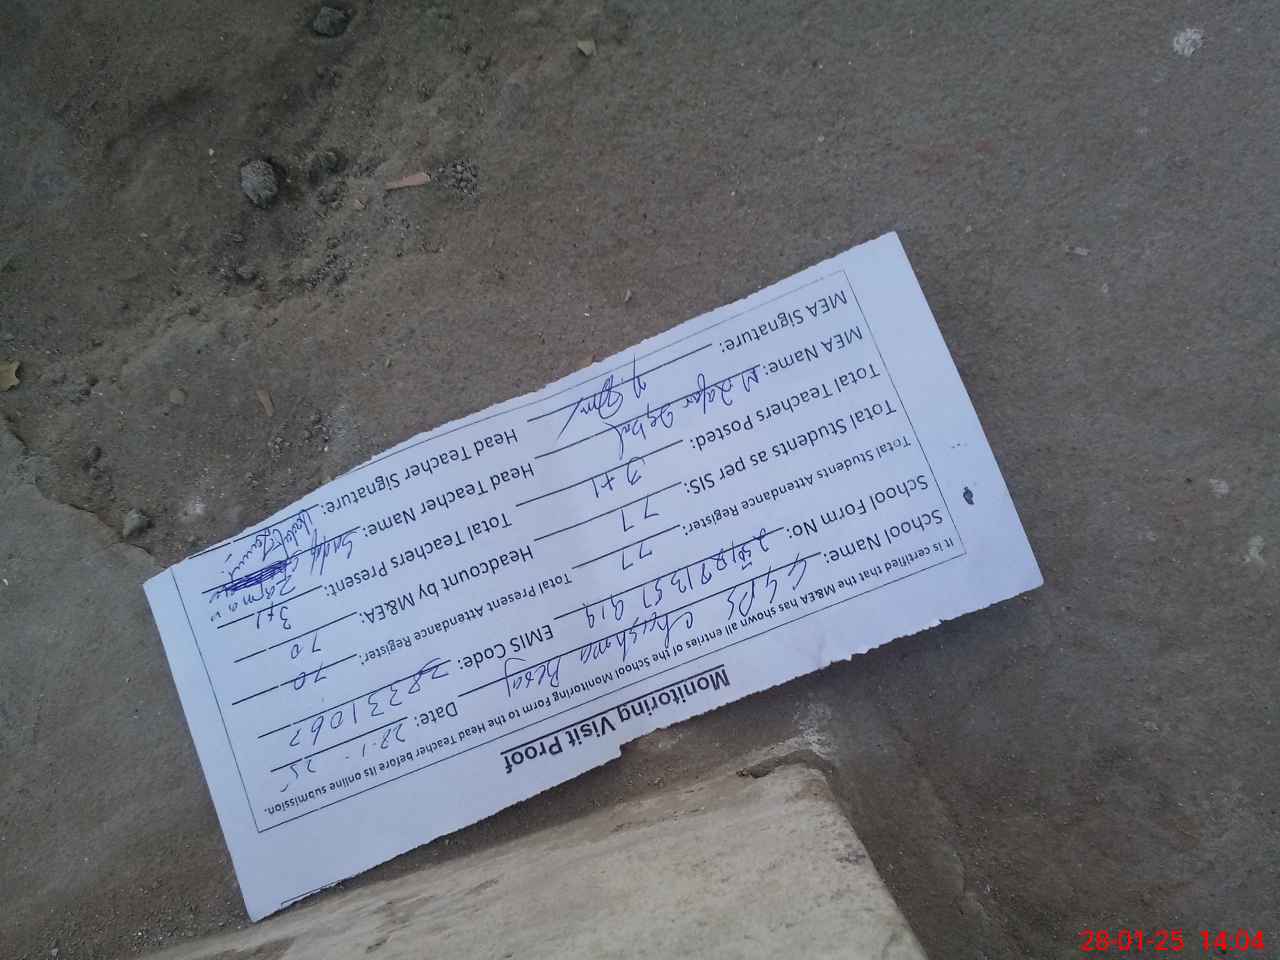 Monitoring Visit Proof
It is certified that the M&EA has shown all entries of the School Monitoring Form to the Head Teacher before its online submission.
School Name: GGPS Chishma Date: 28-1-25
School Form No: EMIS Code:
Total Students Attendance Register: 77 Total Present Attendance Register: 70
Total Students as per SIS: 77 Headcount by M&EA: 70
Total Teachers Posted: 3+1 Total Teachers Present: 3+1
MEA Name: Head Teacher Name:
MEA Signature: Head Teacher Signature:
28-01-25 14:04